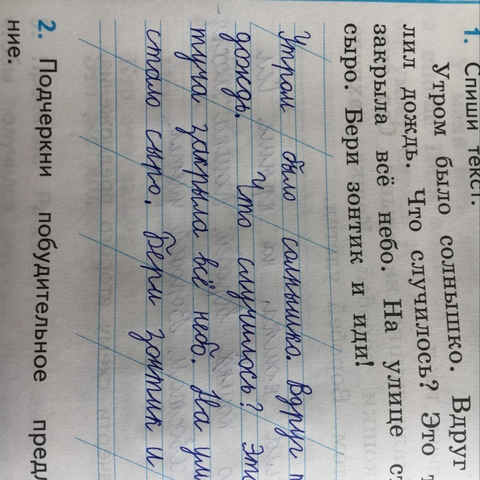 1. Спиши текст.
Утром было солнышко. Вдруг
лил дождь. Что случилось? Это т
закрыла всё небо. На улице ст
сыро. Бери зонтик и иди!
Утром было солнышко. Вдруг п
дождь. Что случилось? Это
туча закрыла всё небо. На ули
стало сыро. Бери зонтик и
2. Подчеркни побудительное предл
ние.